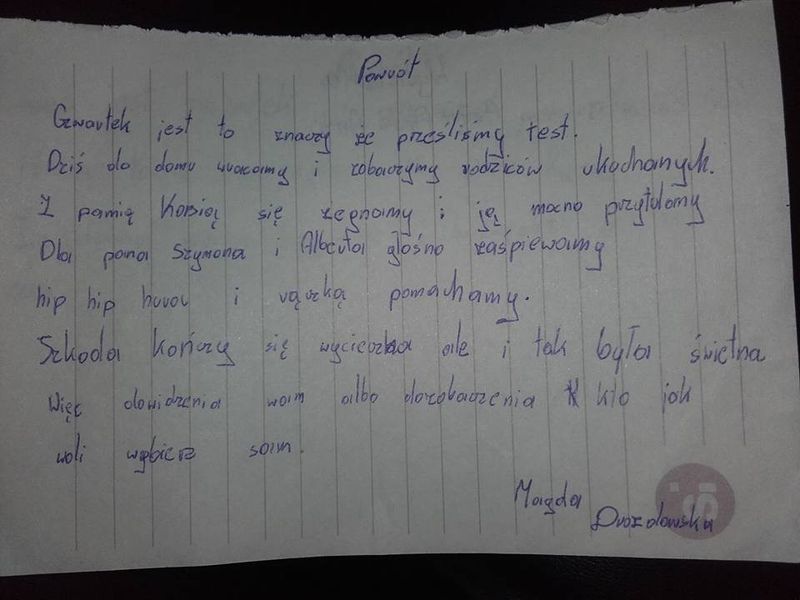 Powrót
Czwartek jest to znaczy że prześliśmy test.
Dziś do domu wracamy i zobaczymy rodziców ukochanych.
Z pamią Kasią się żegnamy i ją mocno przytulamy
Dla pana Szymona i Alberta głośno zaśpiewamy
hip hip hura i rączką pomachamy.
Szkoda kończy się wycieczka ale i tak była świetna
Więc dowidzenia wam albo dozobaczenia kto jak
woli wybierz sam.
Magda
Drozdowska